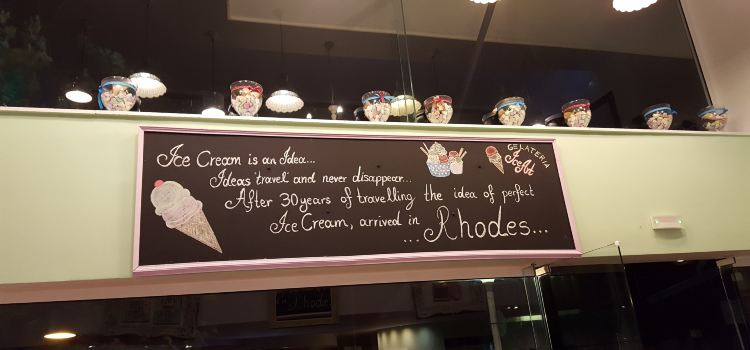 Ice Cream is an Idea...
Ideas 'travel' and never disappear...
After 30 years of travelling the idea of perfect
Ice Cream, arrived in
...Rhodes...
GELATERIA
Ice Art